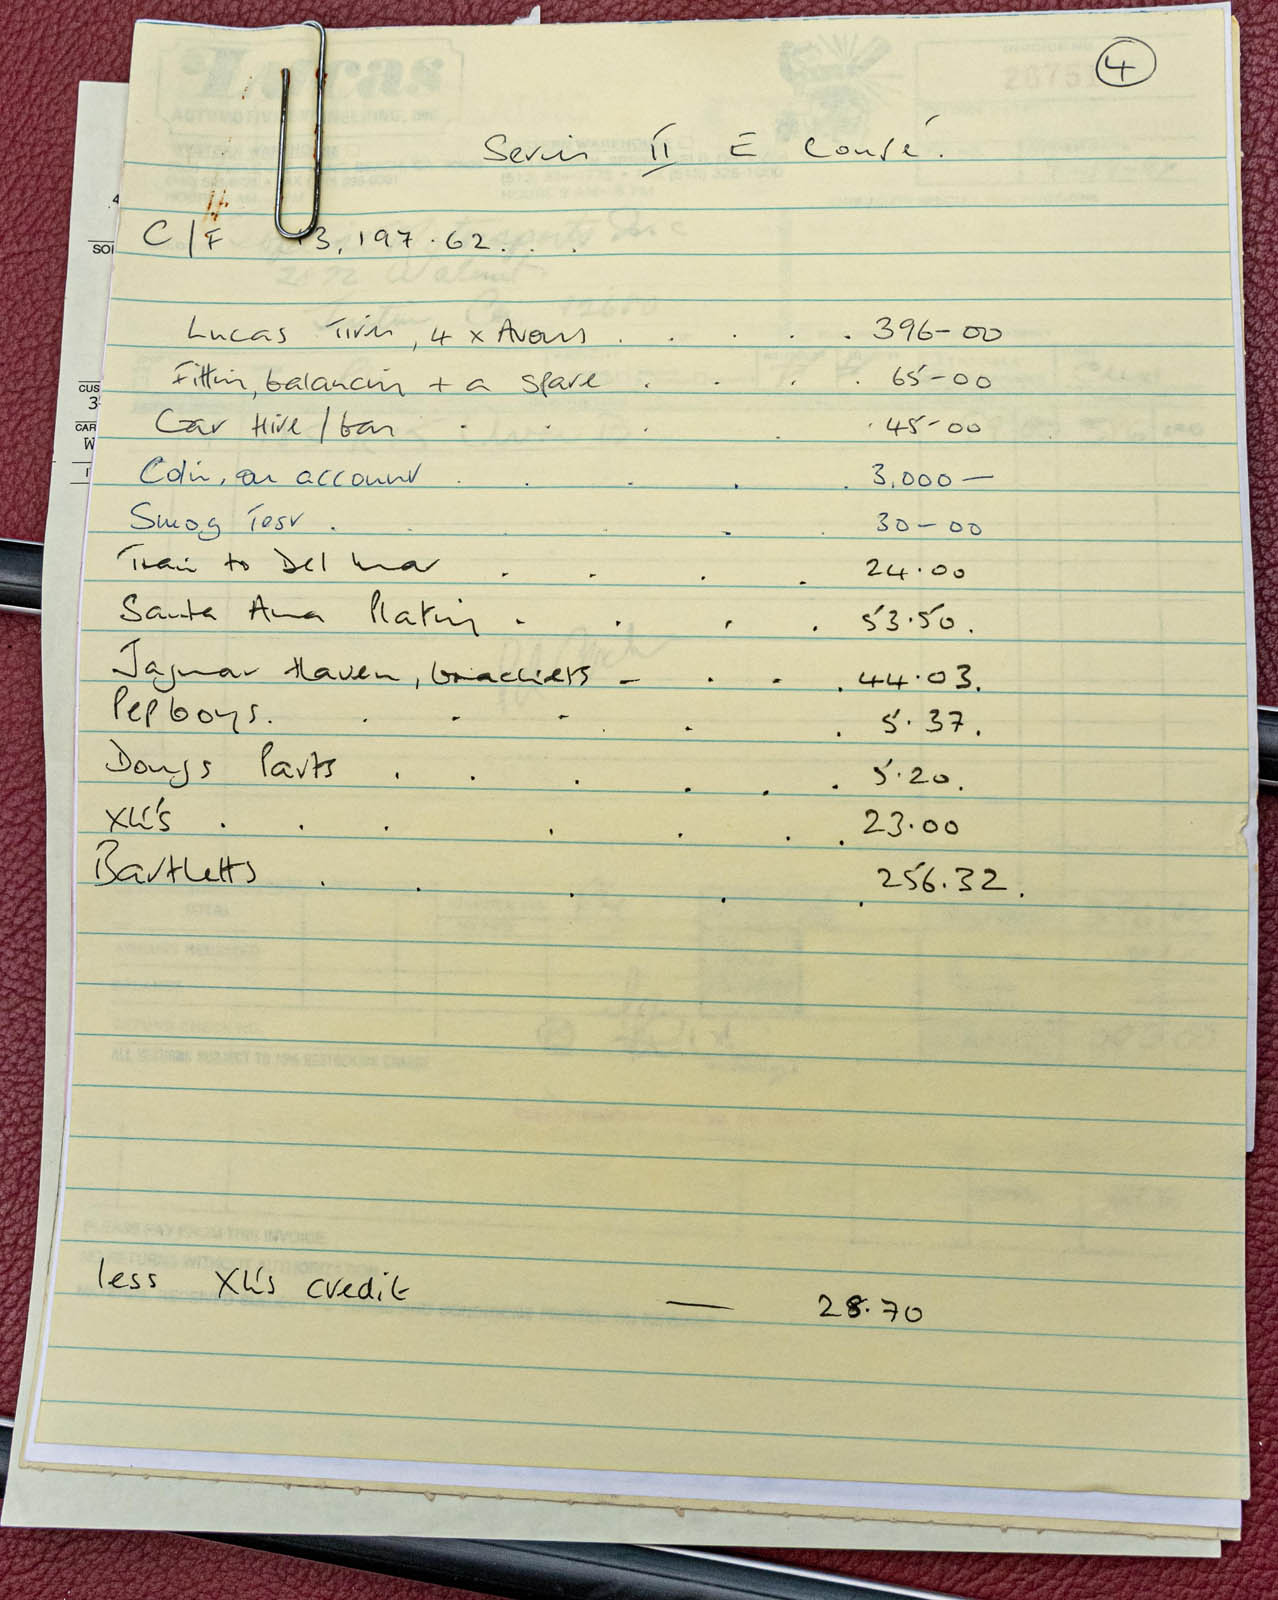 4
Series II E Coupé.
C/F 13,197.62. . .
Lucas Tires, 4 x Avons . . . . . 396-00
Fitting, balancing + a spare . . . . 65-00
Car Hire / . . . . 45-00
Colin, on account . . . . 3,000 —
Smog Test . . . . 30-00
Train to Del Mar . . . . 24.00
Santa Ana Plating . . . . 53.50.
Jaguar Haven, brackets - . . . 44.03.
Pepboys. . . . . . . 5.37.
Dougs Parts . . . . . . 5.20.
XK's . . . . . . . 23.00
Bartletts . . . . . 256.32.
less XK's credit — 28.70
Lucas
26751
SOL
CUS
3
CAR
W
ALL RETURNS SUBJECT TO 10% RESTOCKING CHARGE